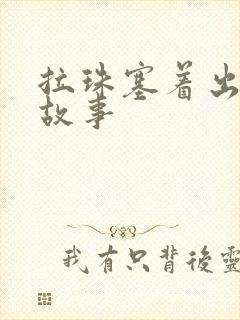 拉珠塞着出
故事
我有只背後靈